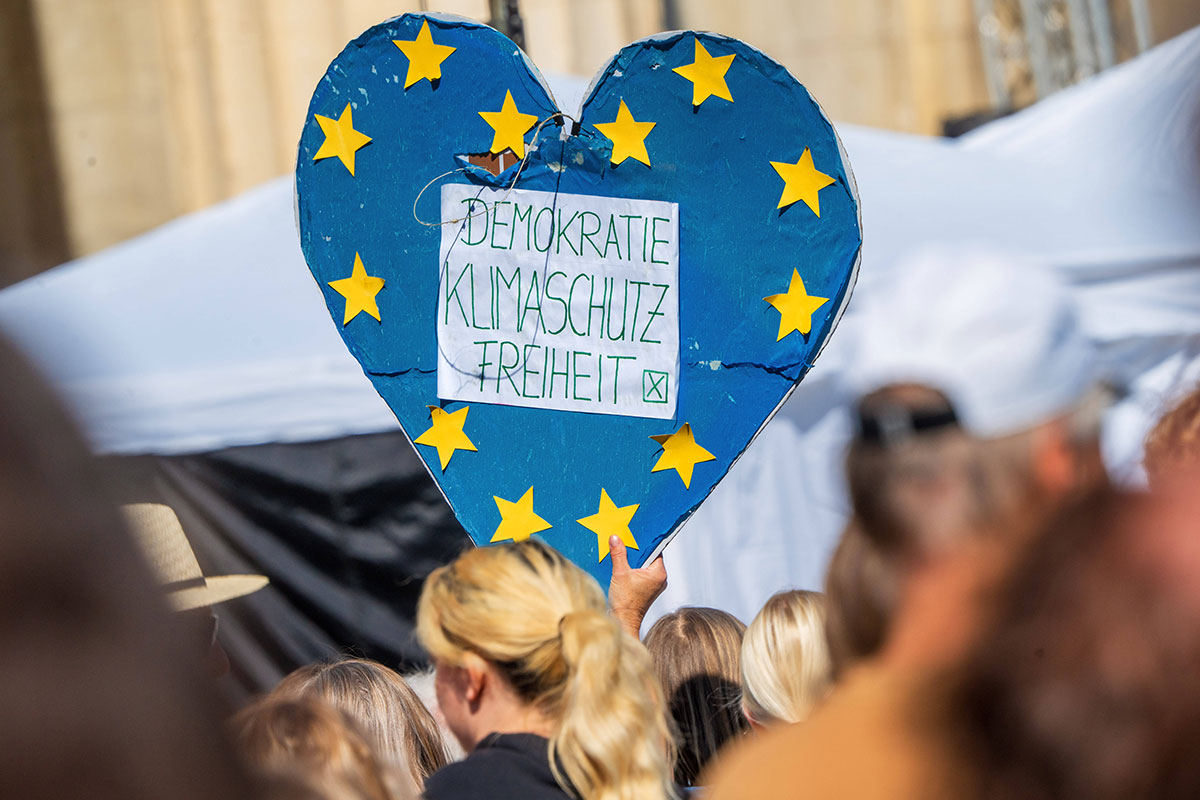 DEMOKRATIE
KLIMASCHUTZ
FREIHEIT ☒